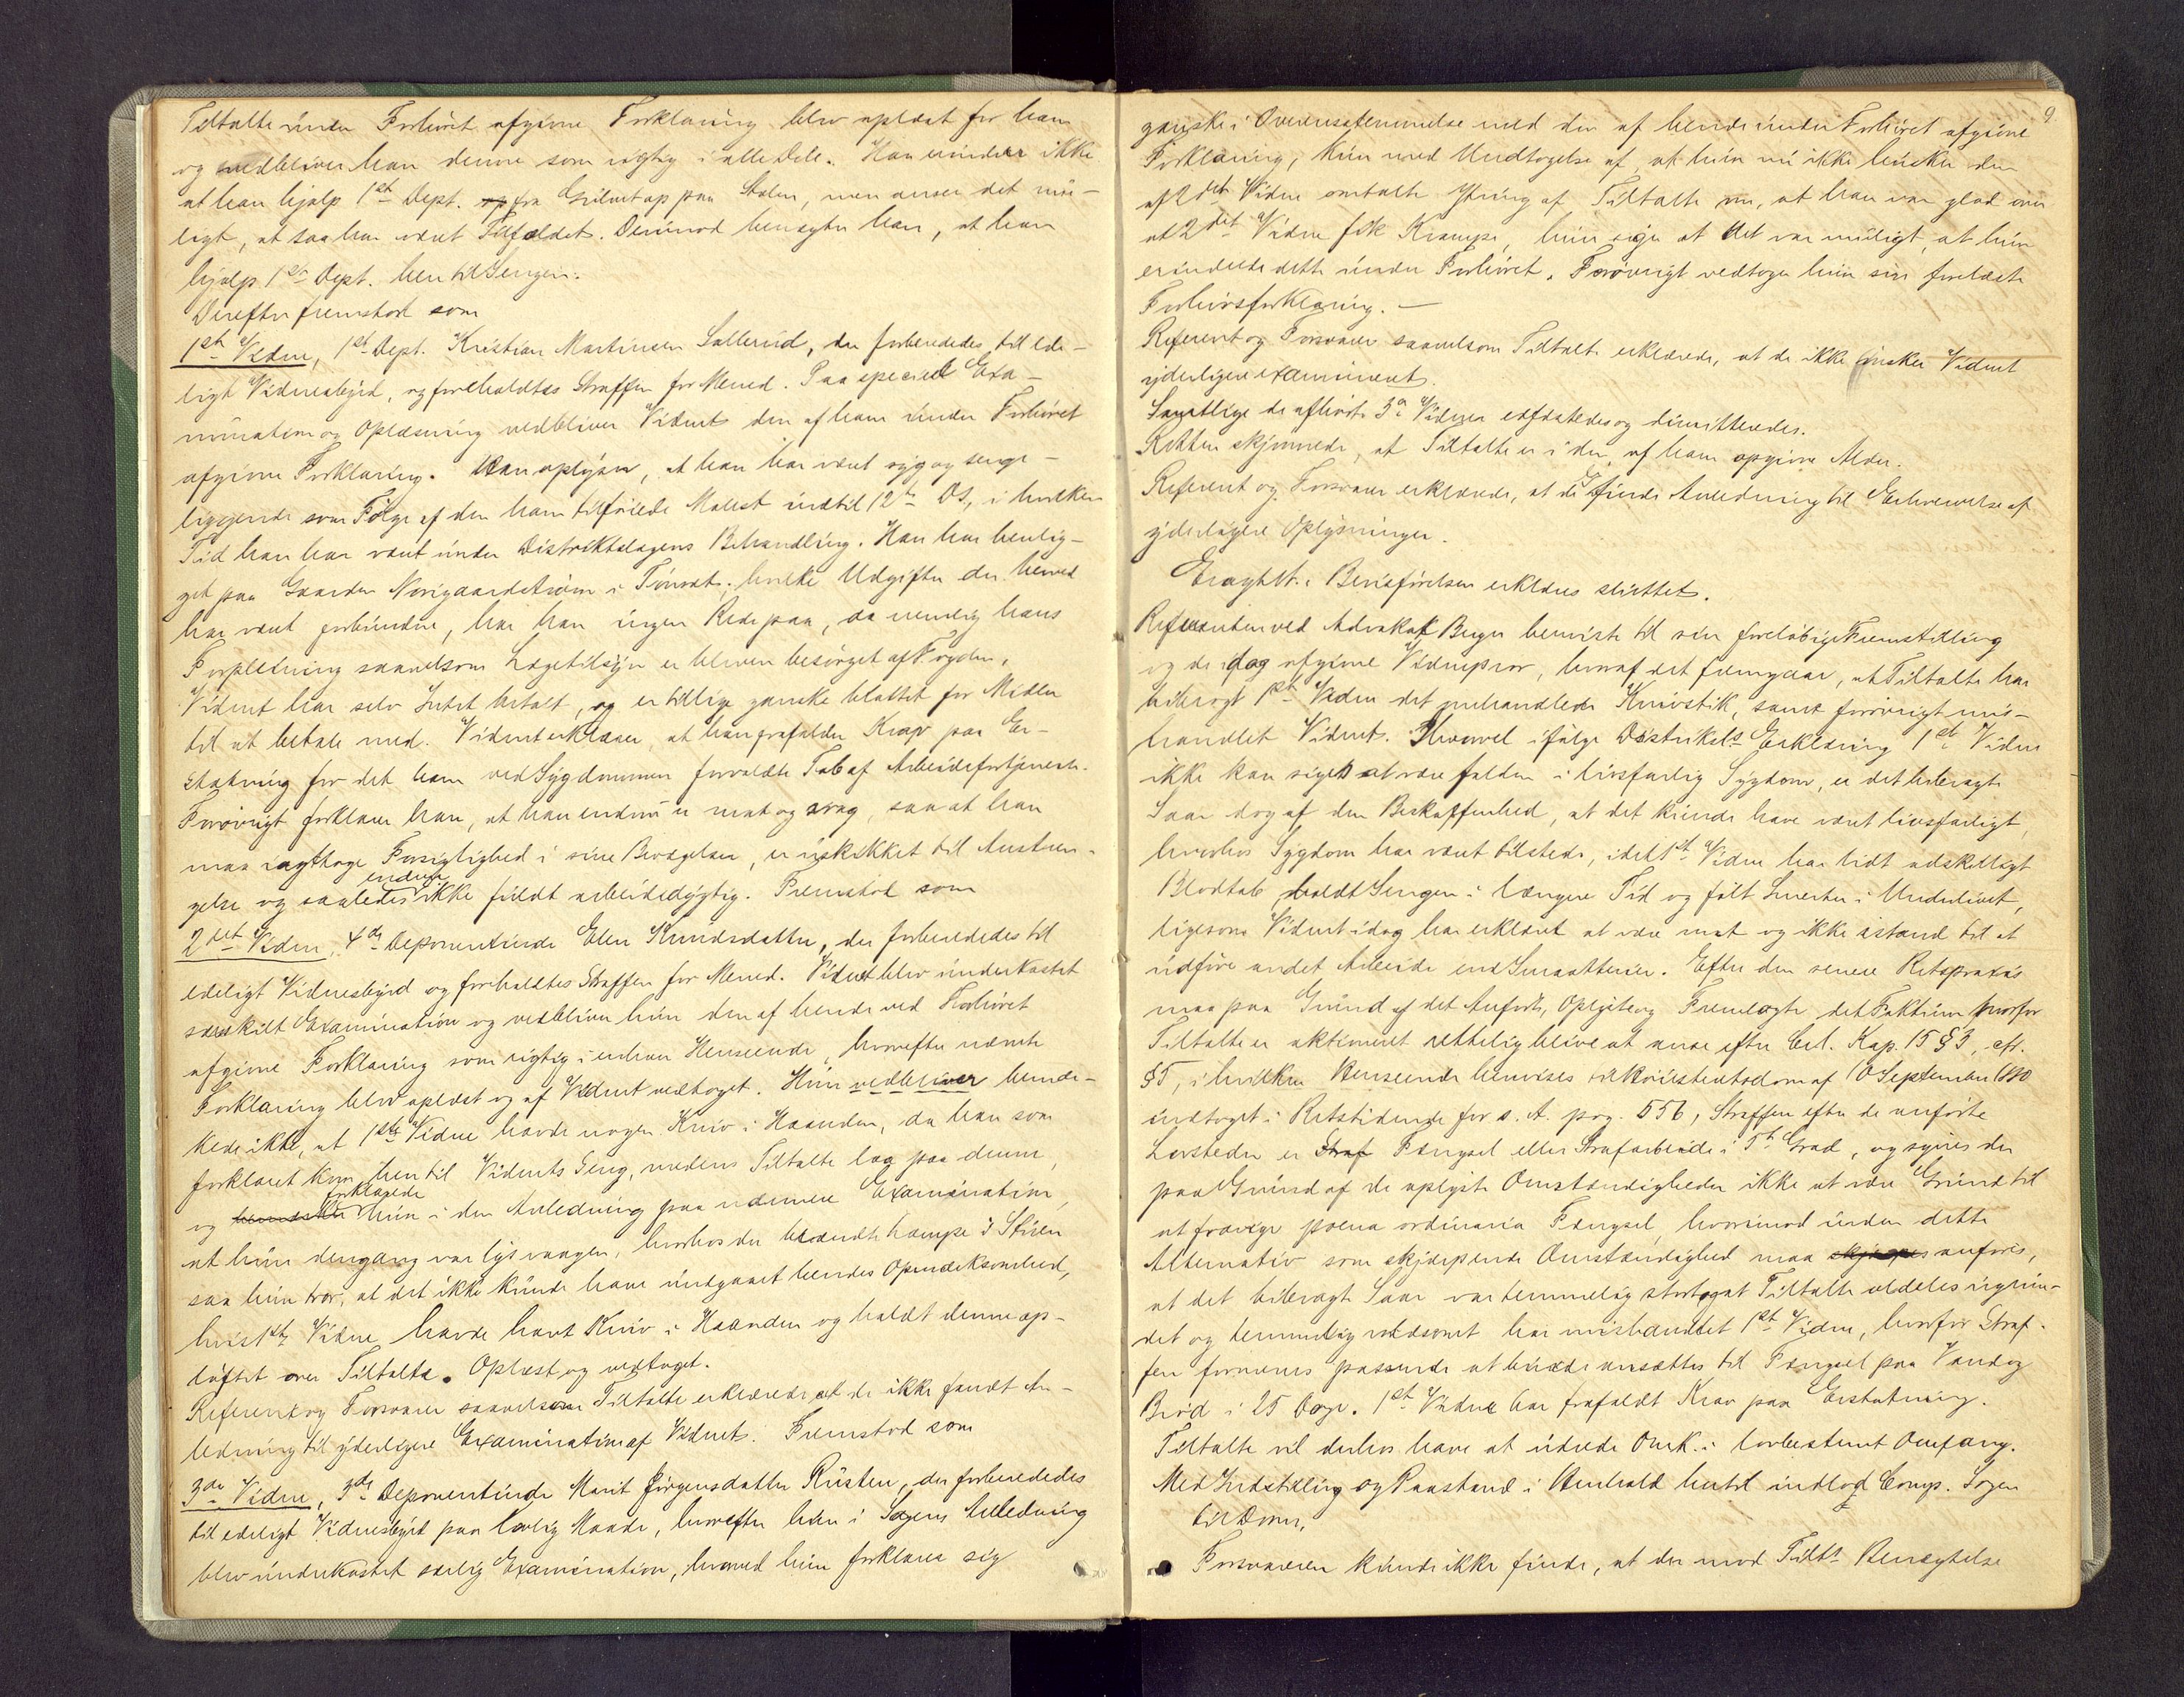 Tiltaltes under Forhøret afgivne Forklaring blev oplæst for ham
og vedbliver han denne som rigtig i alle Dele. Han erindrer ikke
at han hjalp 1ste Dept. fra Gulvet op paa Stolen, men anser det mu-
ligt, at saa har været Tilfældet. Derimod benægter han, at han
hjalp 1ste Dept. hen til Sengen.
Derefter fremstod som
1ste Vidne, 1ste Dept. Kristian Martinsen Sollerud, der forberededes til ede-
ligt Vidnesbyrd, og foreholdtes Straffen for Mened. Paa speciel Exa-
mination og Oplæsning vedbliver Vidnet den af ham under Forhøret
afgivne Forklaring. Han oplyser, at han har været syg og senge-
liggende som Følge af den ham tilføiede Molest indtil 12te Ds, i hvilken
Tid han har været under Distriktslægens Behandling. Han har henlig-
get paa Gaarden Norigaardstrøm i Tønset; hvilke Udgifter der herved
har været forbundne, har han ingen Rede paa, da nemlig hans
Forpleining saavelsom Lægetilsyn er bleven besørget af Fogden.
Vidnet har selv Intet betalt, og er tillige ganske blottet for Midler
til at betale med. Vidnet erklærer, at han frafalder Krav paa Er-
statning for det ham ved Sygdommen forvoldte Tab af Arbeidsfortjeneste.
Forøvrigt forklarer han, at han endnu er mat og svag, saa at han
maa iagttage Forsigtighed i sine Bevægelser, er uskikket til Anstren-
gelse og saaledes endnu ikke fuldt arbeidsdygtig. Fremstod som
2det Vidne, 4de Deponentinde Elen Knudsdatter, der forberededes til
edeligt Vidnesbyrd og foreholdtes Straffen for Mened. Vidnet blev underkastet
særskilt Examination og vedbliver hun den af hende ved Forhøret
afgivne Forklaring som rigtig i enhver Henseende, hvorefter nævnte
Forklaring blev oplæst og af Vidnet vedtaget. Hun vedbliver bemær-
kede ikke, at 1ste Vidne havde nogen Kniv i Haanden, da han som
forklaret kom hen til Vidnets Seng, medens Tiltalte laa paa denne,
og forklarede hun i den Anledning paa nærmere Examination,
at hun dengang var lys vaagen, hvorhos der brændte Lampe i Stuen
saa hun tror, at det ikke kunde have undgaaet hendes Opmærksomhed,
hvis 1ste Vidne havde havt Kniv i Haanden og holdt denne op-
løftet over Tiltalte. Oplæst og vedtaget.
Referent og Forsvarer saavelsom Tiltalte erklærede, at de ikke fandt An-
ledning til yderligere Examination af Vidnet. Fremstod som
3die Vidne, 3die Deponentinde Marit Jørgensdatter Rusten, der forberededes
til edeligt Vidnesbyrd paa lovlig Maade, hvorefter hun i Sagens Anledning
blev underkastet særlig Examination, hvorved hun forklarer sig
9.
ganske i Overensstemmelse med den af hende under Forhøret afgivne
Forklaring, kun med Undtagelse af, at hun nu ikke husker den
af 2det Vidne omtalte Ytring af Tiltalte om, at han var glad over
at 2det Vidne fik Krampe, hun siger at det var muligt, at hun
erindrede dette under Forhøret. Forøvrigt vedtoges hun sin forelæste
Forhørsforklaring. —
Referent og Forsvarer saavelsom Tiltalte erklærede, at de ikke ønsker Vidnet
yderligere examineret.
Samtlige de afhørte 3de Vidner edfæstedes og dimitteredes.
Retten skjønnede, at Tiltalte er i den af ham opgivne Alder.
Referent og Forsvarer erklærede, at de ei finde Anledning til Erhvervelse af
yderligere Oplysninger.
Eragtet: Bevisførelsen erklæres sluttet.
Referenten ved Advokat Beyer henviste til sin foreløbige Fremstilling
og de idag afgivne Vidneprov, hvoraf det fremgaar, at Tiltalte har
bibragt 1ste Vidne det omhandlede Knivstik, samt forøvrigt mis-
handlet Vidnet. Hvorvel ifølge Distriktsl's Erklæring 1ste Vidne
ikke kan siges at være falden i livsfarlig Sygdom, er det bibragte
Saar dog af den Beskaffenhed, at det kunde have været livsfarligt,
hvorhos Sygdom har været tilstede, idet 1ste Vidne har lidt adskilligt
Blodtab, holdt Sengen i længere Tid og følt Smerter i Underlivet,
ligesom Vidnet idag har erklæret at være mat og ikke istand til at
udføre andet Arbeide end Smaatterier. Efter den senere Retspraxis
maa paa Grund af det Anførte, Oplyste og Fremlagte det Faktum hvorfor
Tiltalte er aktioneret rettelig blive at anse efter Crl. Kap. 15 § 3, cfr.
§ 5, i hvilken Henseende henvises til Høiesteretsdom af 10 September 1880
indtaget i Retstidende for s. A. pag. 556, Straffen efter de anførte
Lovsteder er Fængsel eller Strafarbeide i 5te Grad, og synes der
paa Grund af de oplyste Omstændigheder ikke at være Grund til
at fravige poena ordinaria Fængsel, hvorimod inden dette
Alternativ som skjærpende Omstændighed maa anføres,
at det bibragte Saar var temmelig stort og at Tiltalte aldeles ugrun-
det og temmelig voldsomt har mishandlet 1ste Vidne, hvorfor Straf-
fen formenes passende at burde ansættes til Fængsel paa Vand og
Brød i 25 Dage. 1ste Vidne har frafaldt Krav paa Erstatning.
Tiltalte vil derhos have at udrede Omk. i lovbestemt Omfang.
Med Indstilling og Paastand i Henhold hertil indlod Comp. Sagen
til Doms.
Forsvareren kunde ikke finde, at der mod Tilts Benægtelse